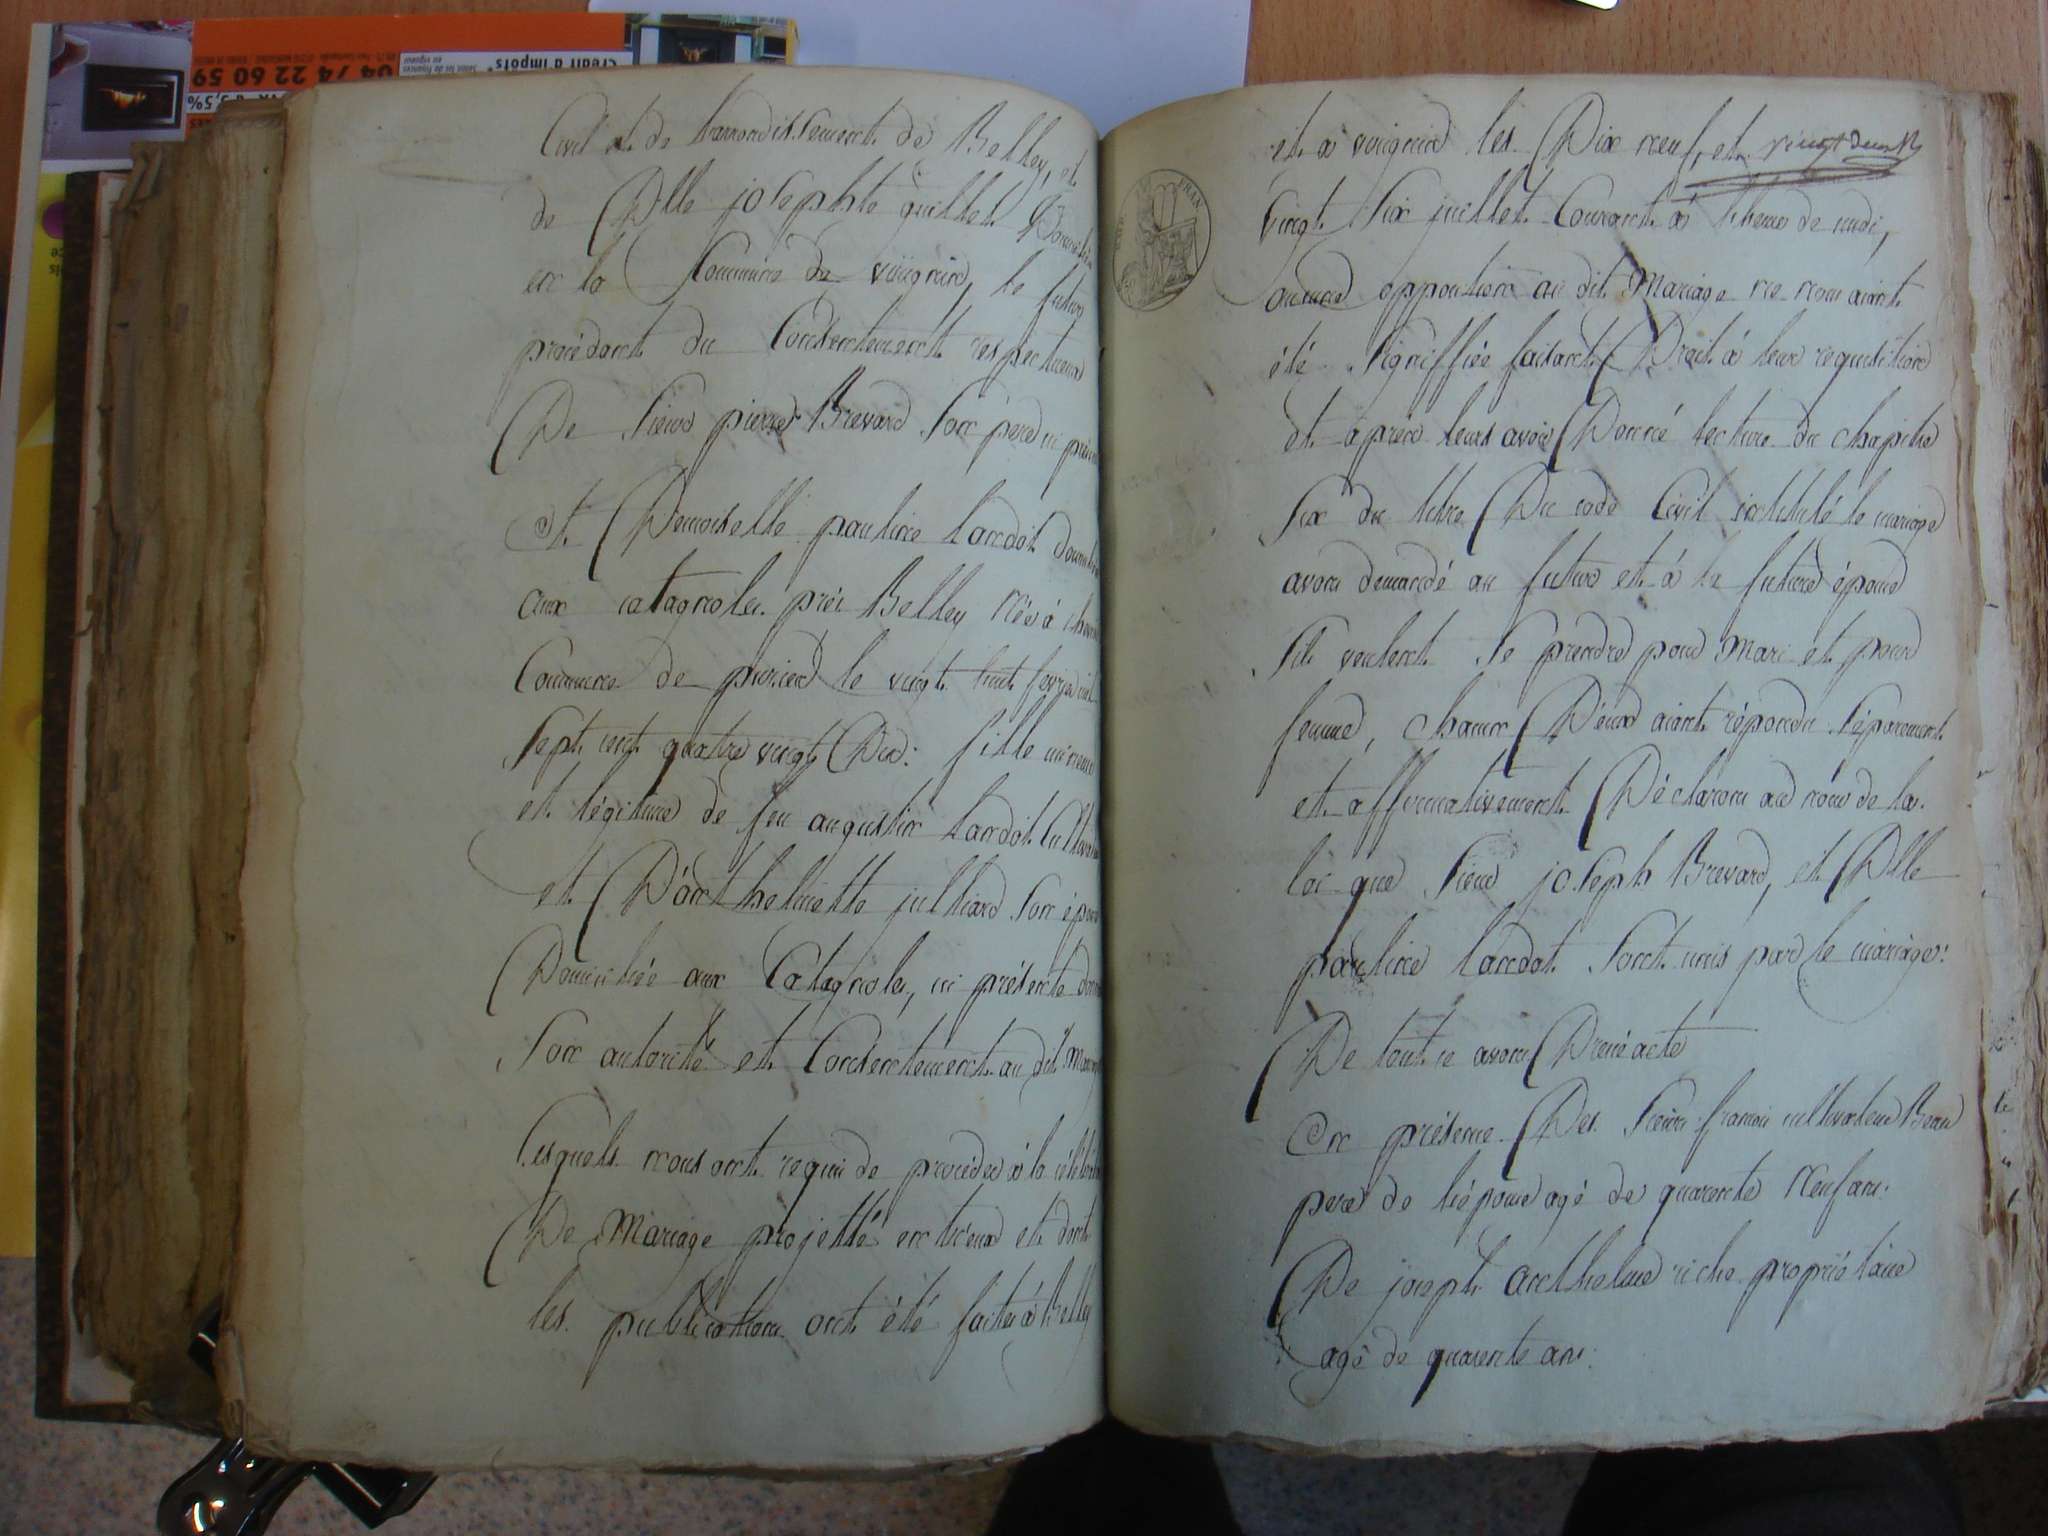 04 74 22 60 59
Crédit d'impôts*
5,5%
Civil et de larrondissement de Belley, et
de Dlle josephte quillet Domiciliée
en la Commune de virignin, le futur
procédant du Consentement respectueux
De Sieur pierre Brevard Son père ici présent
Et Demoiselle pauline tardot
aux catagnoles près Belley Née à
Commune de le vingt huit fevrier mil
Sept cent quatre vingt Dix: fille mineure
et légitime de feu augustin tardot Cultivateur
et D'anthelmette julliard Son épouse
Domiciliée aux Catagnoles, ici présente
Son autorité et Consentement au dit Mariage
Lesquels nous ont requis de procéder à la célébration
De Mariage projetté entr'eux et dont
les publications ont été faites à Belley
et à virignin les Dix neuf, et vingt deux
vingt Six juillet Courant à l'heure de midi,
aucune opposition au dit Mariage ne nous aiant
été Signiffiée faisant Droit à leur requisition
et après leurs avoir Donné lecture du chapitre
Six du titre Du code Civil intitulé le mariage
avons demandé au futur et à la future épouse
Sils veulent Se prendre pour Mari et pour
femme, chacun D'eux aiant répondu Séparement
et affirmativement Déclarons au nom de la
loi que Sieur joseph Brevard, et Dlle
pauline tardot Sont unis par le mariage:
De tout ce avons Dressé acte
En présence Des Sieurs françois cultivateur Beau
pere de l'épouse agé de quarente Neuf ans.
De joseph anthelme riche propriétaire
agé de quarente ans.